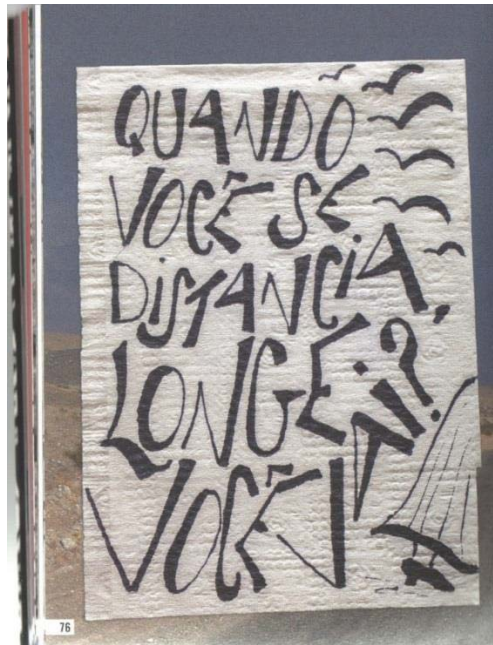 QUANDO
VOCÊ SE
DiSTANCiA,
LONGE
VOCÊ VAi?
76